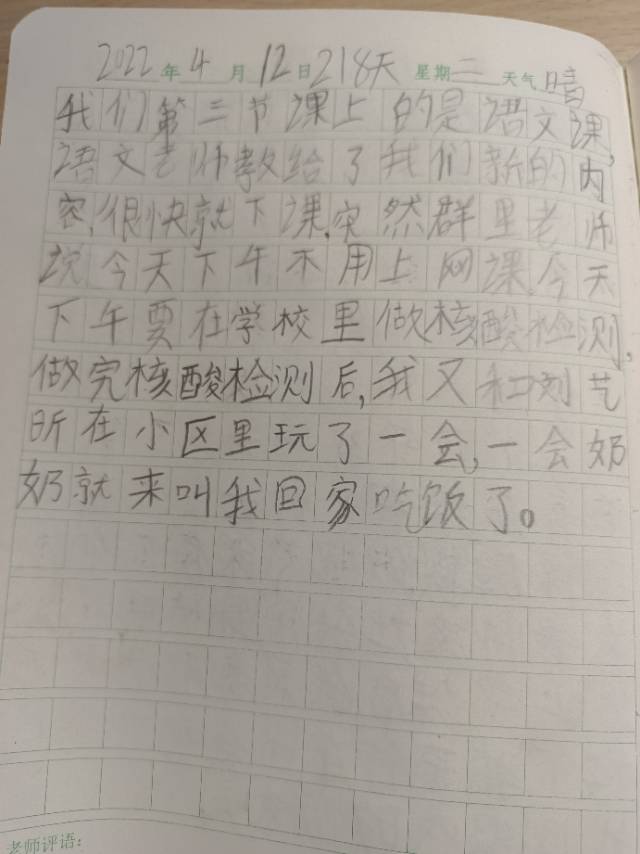 2022年4月12日218天 星期二 天气晴
我们第三节课上的是语文课,
语文老师教给了我们新的内
容,很快就下课,突然群里老师
说今天下午不用上网课,今天
下午要在学校里做核酸检测,
做完核酸检测后,我又和刘艺
昕在小区里玩了一会,一会奶
奶就来叫我回家吃饭了。
老师评语: